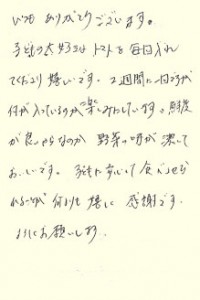 いつもありがとうございます。
子どもの大好きなトマトを毎回入れ
てくださり嬉しいです。2週間に一回ですが
何が入っているのか楽しみにしています。鮮度
が良いからなのか 野菜の味が濃くて
おいしいです。子どもに安心して食べさせら
れるのが何よりも嬉しく 感謝です。
よろしくお願いします。